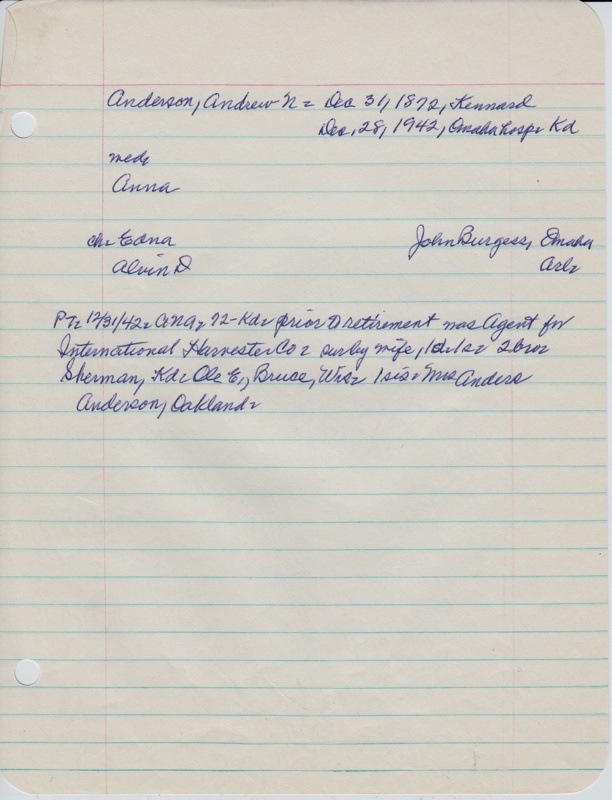 Anderson, Andrew N - Dec 31, 1872, Kennard
Dec, 28, 1942, Omaha hosp - Kd
med,
Anna
ch - Edna John Burgess, Omaha
Alvin D Arl -
PT - 12/31/42 - ANA, 72 - Kd - prior to retirement was Agent for
International Harvester Co - sur by wife, 1d, 1s - 2 bro -
Sherman, Kd - Ole E., Bruce, Wis - 1 sis - Mrs Anders
Anderson, Oakland -